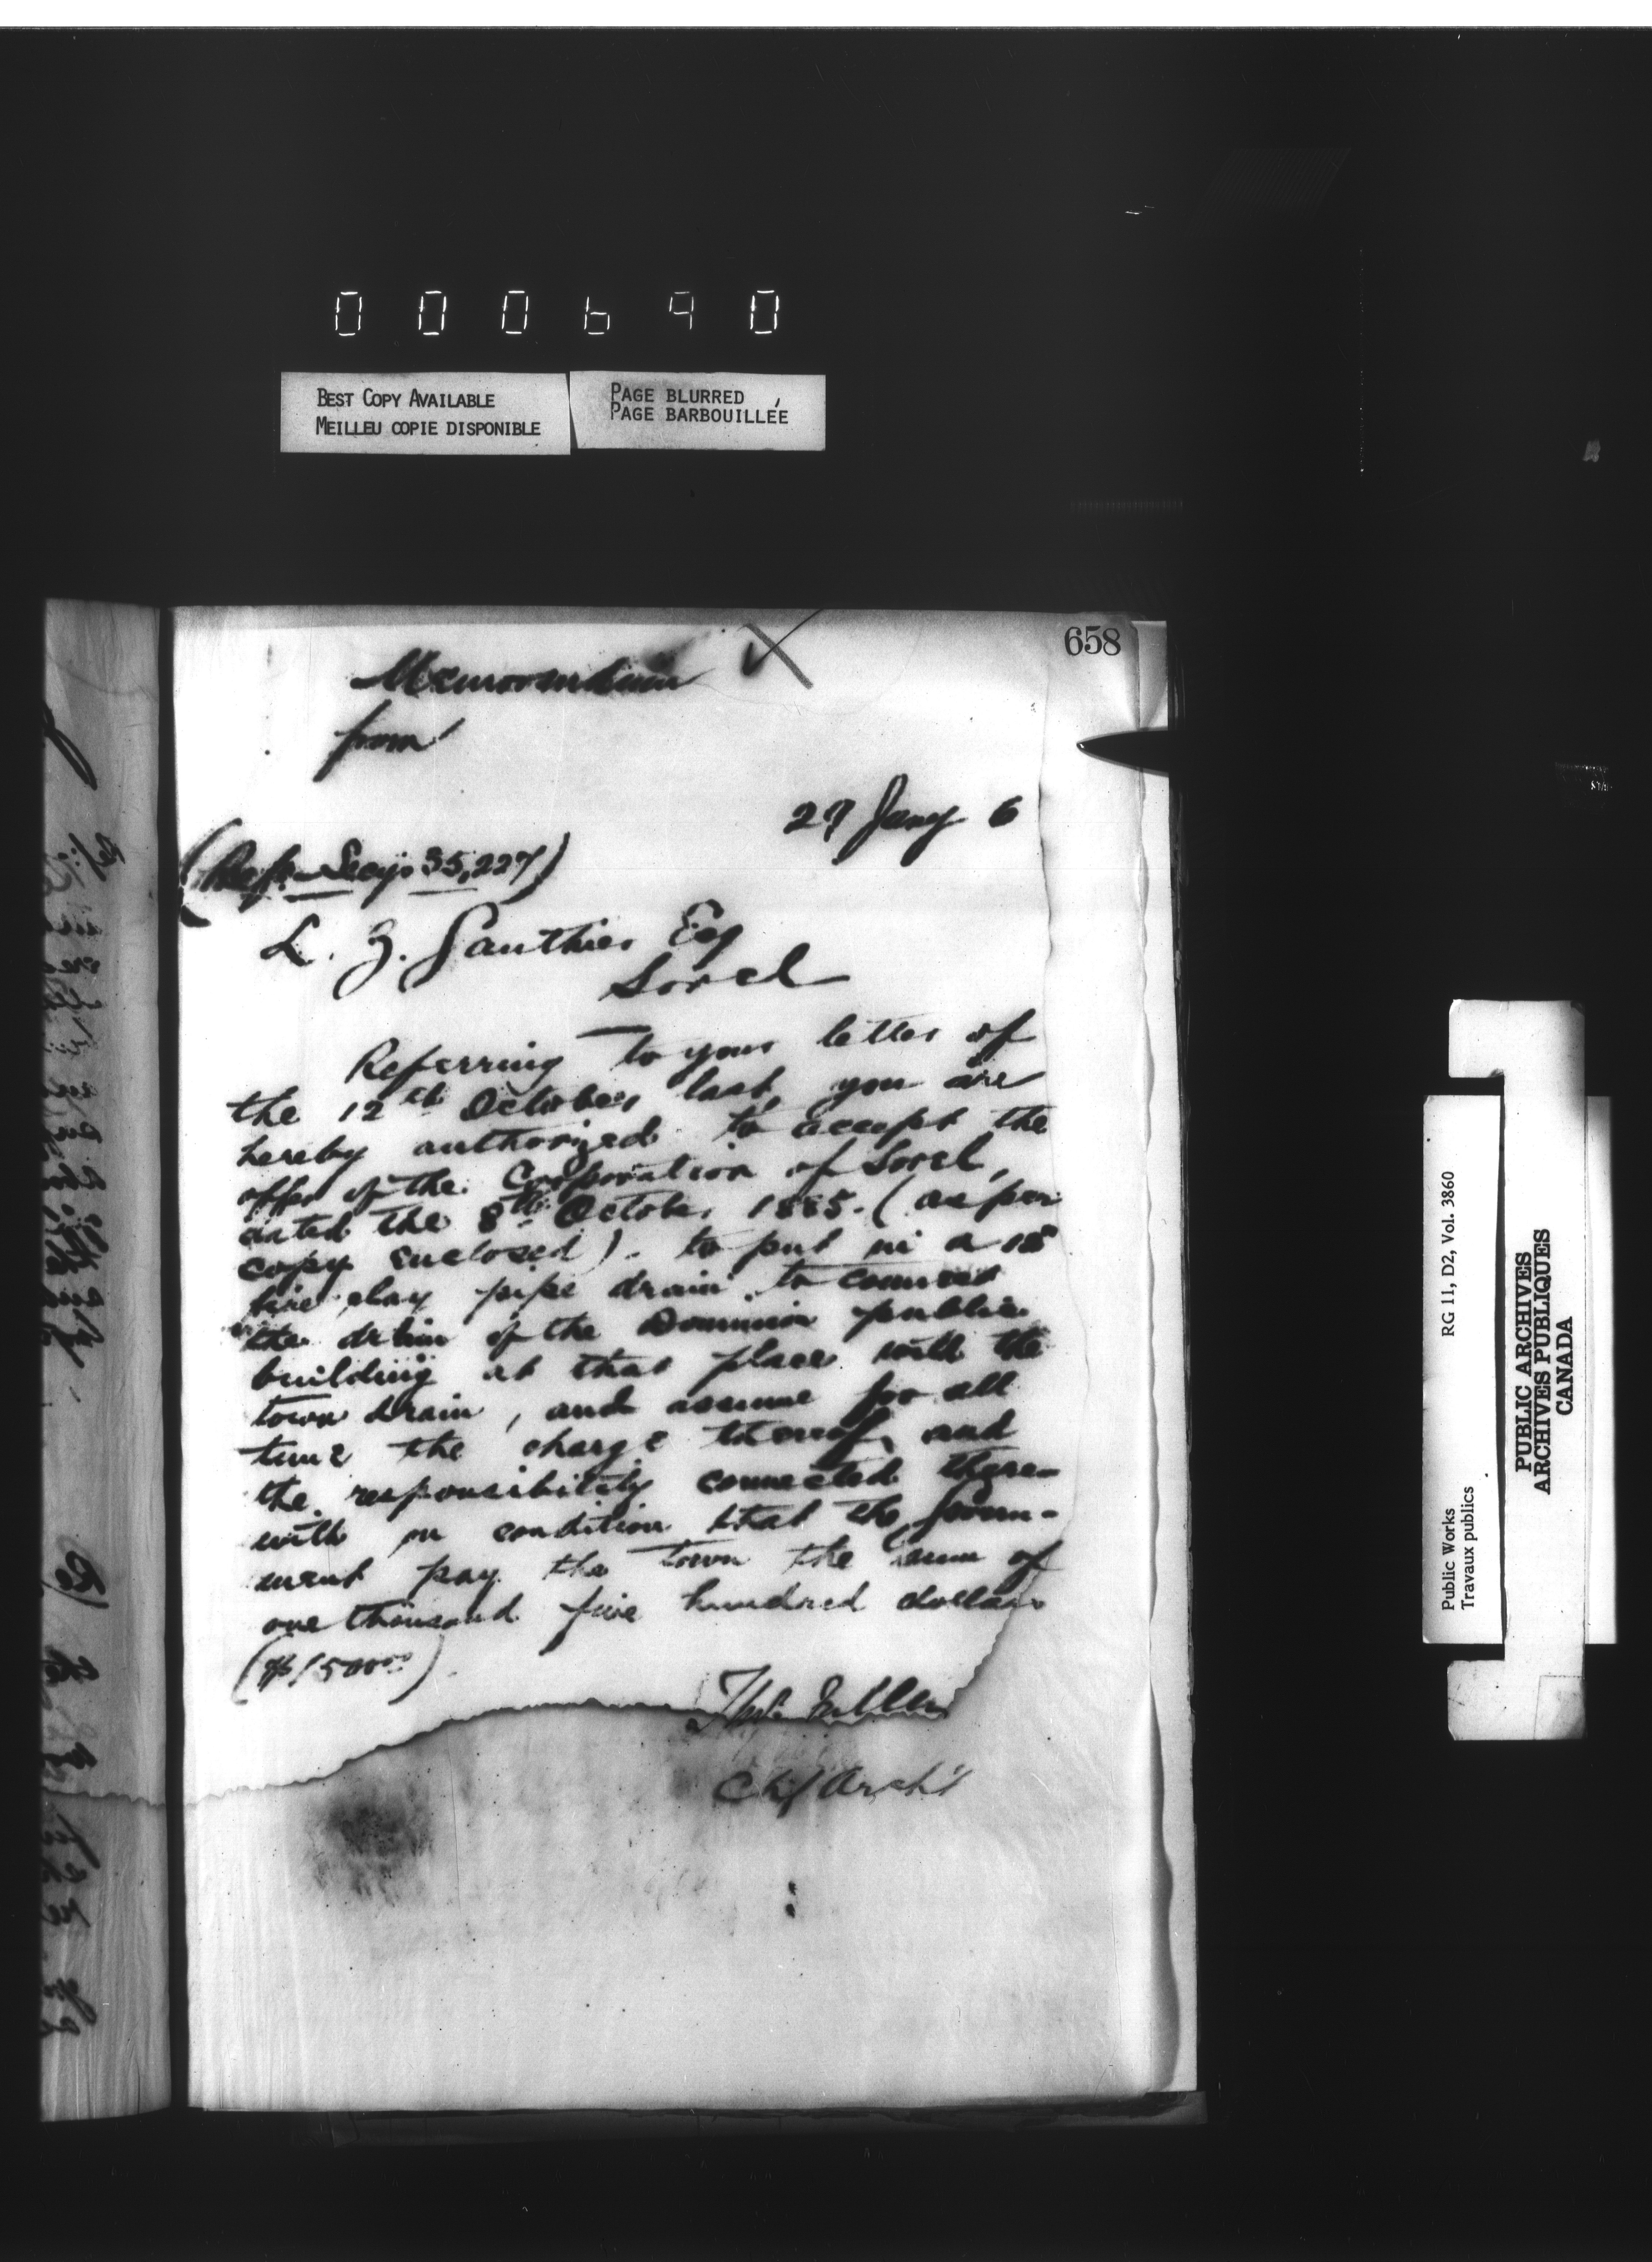 000690
BEST COPY AVAILABLE
MEILLEU COPIE DISPONIBLE
PAGE BLURRED
PAGE BARBOUILLÉE
658
Memorandum
from
27 Jany 6
(Ref. Secy. 35,227)
L. Z. Gauthier Esq
Sorel
Referring to your letter of
the 12th October last, you are
hereby authorized to accept the
offer of the Corporation of Sorel,
dated the 8th October 1885. (as per
copy enclosed). to put in a 18"
fire clay pipe drain to connect
the drain of the Dominion public
building at that place with the
town drain, and assume for all
time the charge thereof, and
the responsibility connected there-
with on condition that the Govern-
ment pay the town the sum of
one thousand five hundred dollars
($1500.00).
Thos Fuller
Chf Archt
Public Works
Travaux publics
RG 11, D2, Vol. 3860
PUBLIC ARCHIVES
ARCHIVES PUBLIQUES
CANADA